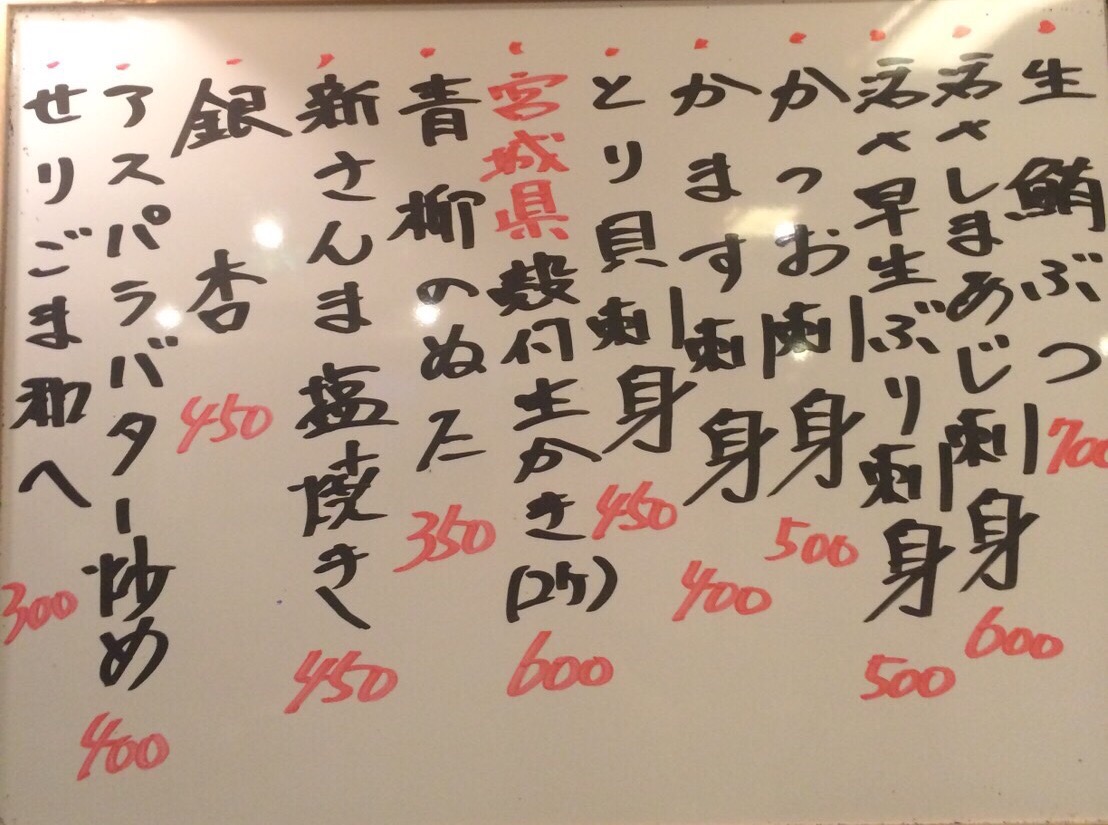 生鮪ぶつ 700
しまあじ刺身 600
早生ぶり刺身 500
かつお刺身 500
かます刺身 400
とり貝刺身 450
宮城県殻付生かき(2ケ) 600
青柳のぬた 350
新さんま塩焼き 450
銀杏 450
アスパラバター炒め 400
せりごま和へ 300